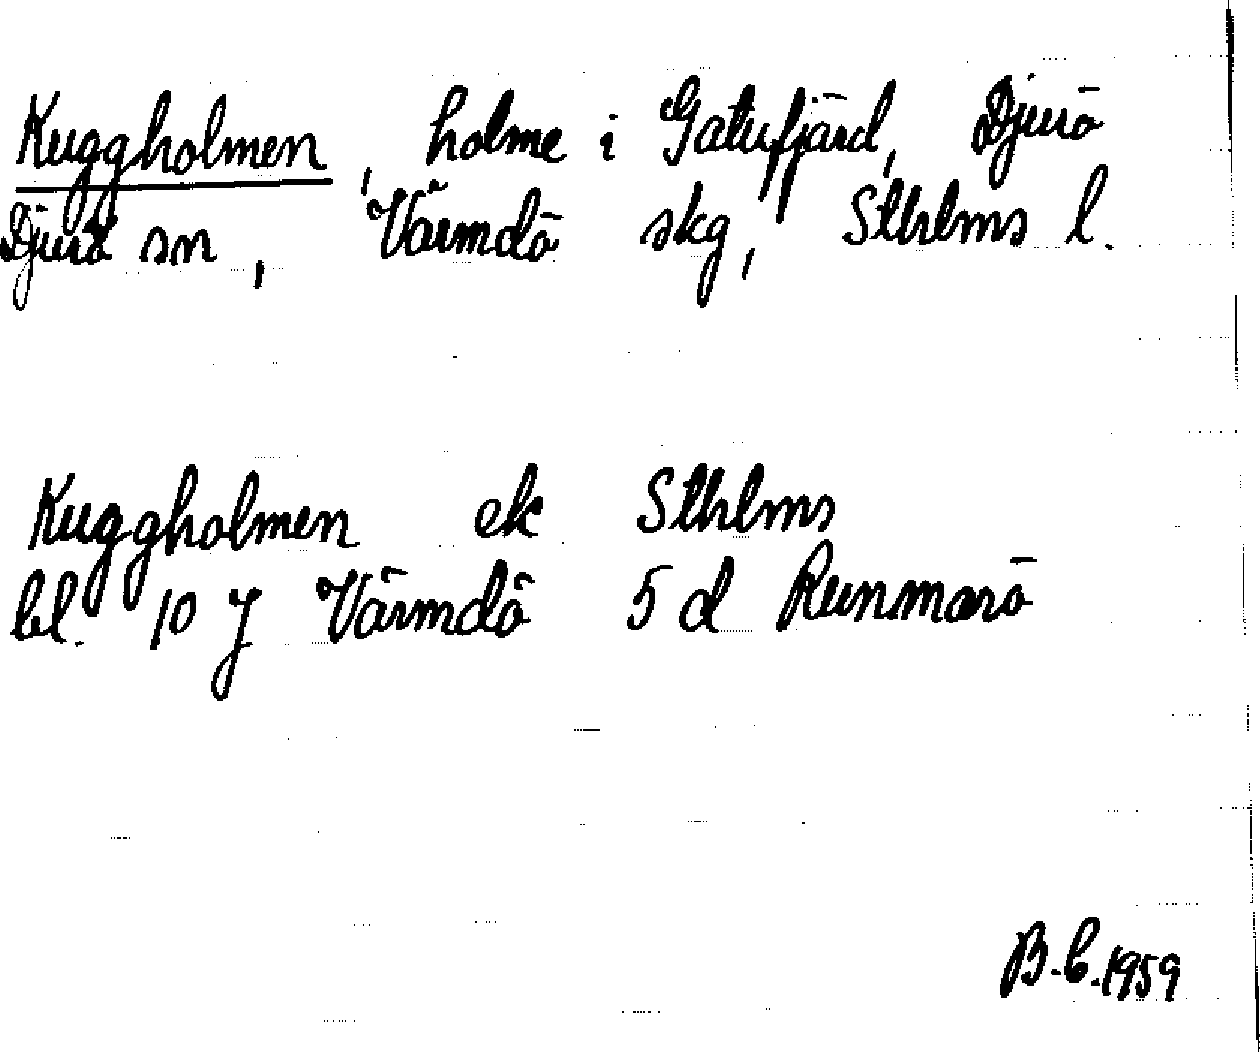 Kuggholmen, holme i Gatufjärd, Djurö
Djurö sn, Värmdö skg, Sthlms l.
Kuggholmen ek Sthlms
bl. 10 J Värmdö 5 d Runmarö
B.C.1959